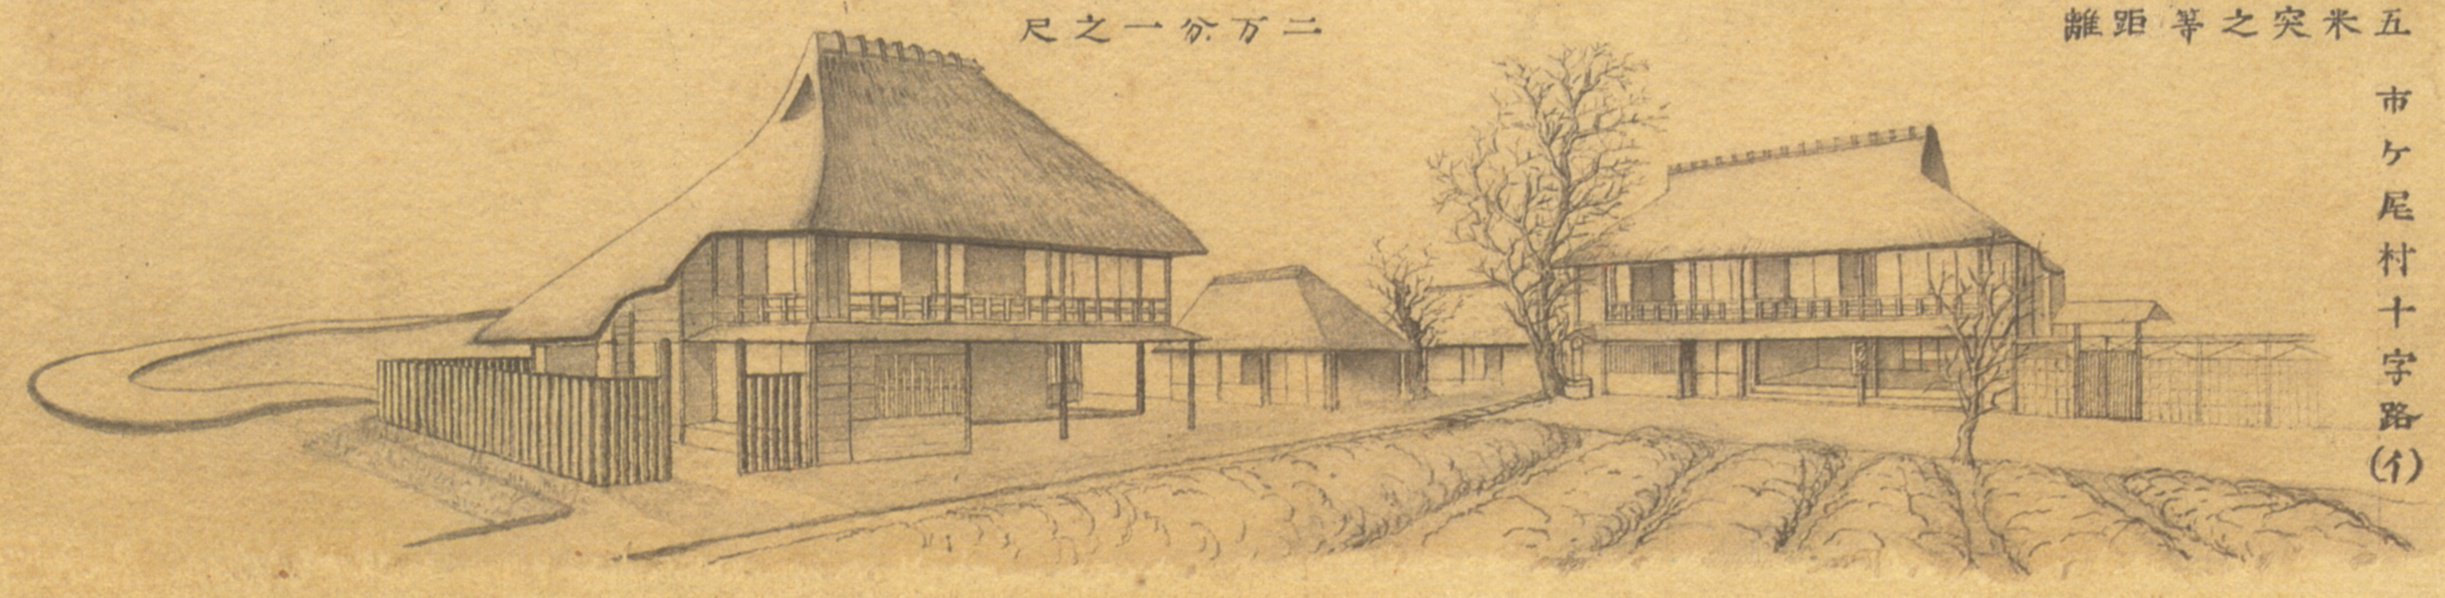 五米突之等距離
二万分一之尺
市ケ尾村十字路(イ)